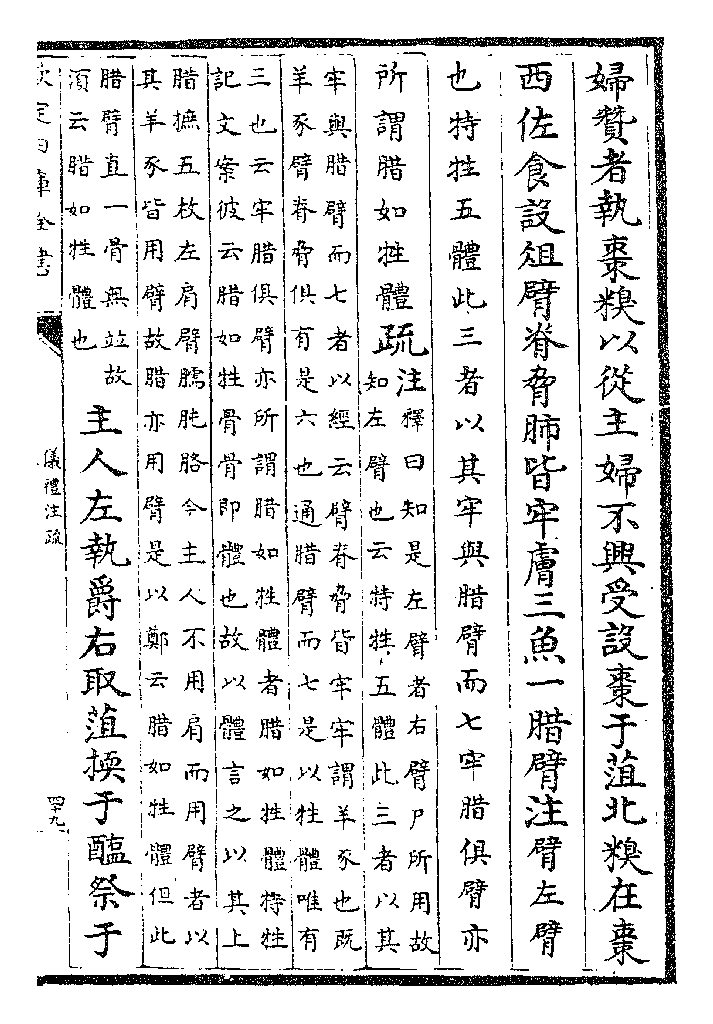 婦贊者執棗糗以從主婦不興受設棗于菹北糗在棗
西佐食設俎臂脊脅肺皆牢膚三魚一腊臂注臂左臂
也特牲五體此三者以其牢與腊臂而七牢腊俱臂亦
所謂腊如牲體疏
注釋曰知是左臂者右臂尸所用故
知左臂也云特牲五體此三者以其
牢與腊臂而七者以經云臂脊脅皆牢牢謂羊豕也既
羊豕臂脊脅俱有是六也通腊臂而七是以牲體唯有
三也云牢腊俱臂亦所謂腊如牲體者腊如牲體特牲
記文案彼云腊如牲骨骨即體也故以體言之以其上
腊摭五枚左肩臂臑肫胳今主人不用肩而用臂者以
其羊豕皆用臂故腊亦用臂是以鄭云腊如牲體但此
腊臂直一骨無並故
須云腊如牲體也
主人左執爵右取菹㨎于醢祭于
欽定四庫全書
儀禮注疏
四十九